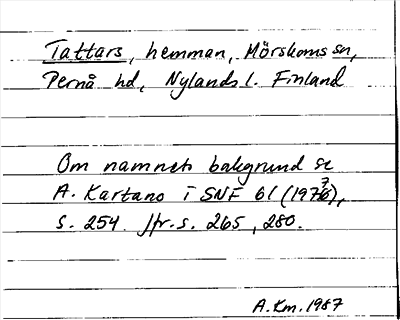 Tattars, hemman, Mörskoms sn,
Pernå hd, Nylands l. Finland
Om namnets bakgrund se
A. Kartano i SNF 61 (1977),
s. 254. Jfr. s. 265, 280.
A.Km. 1987